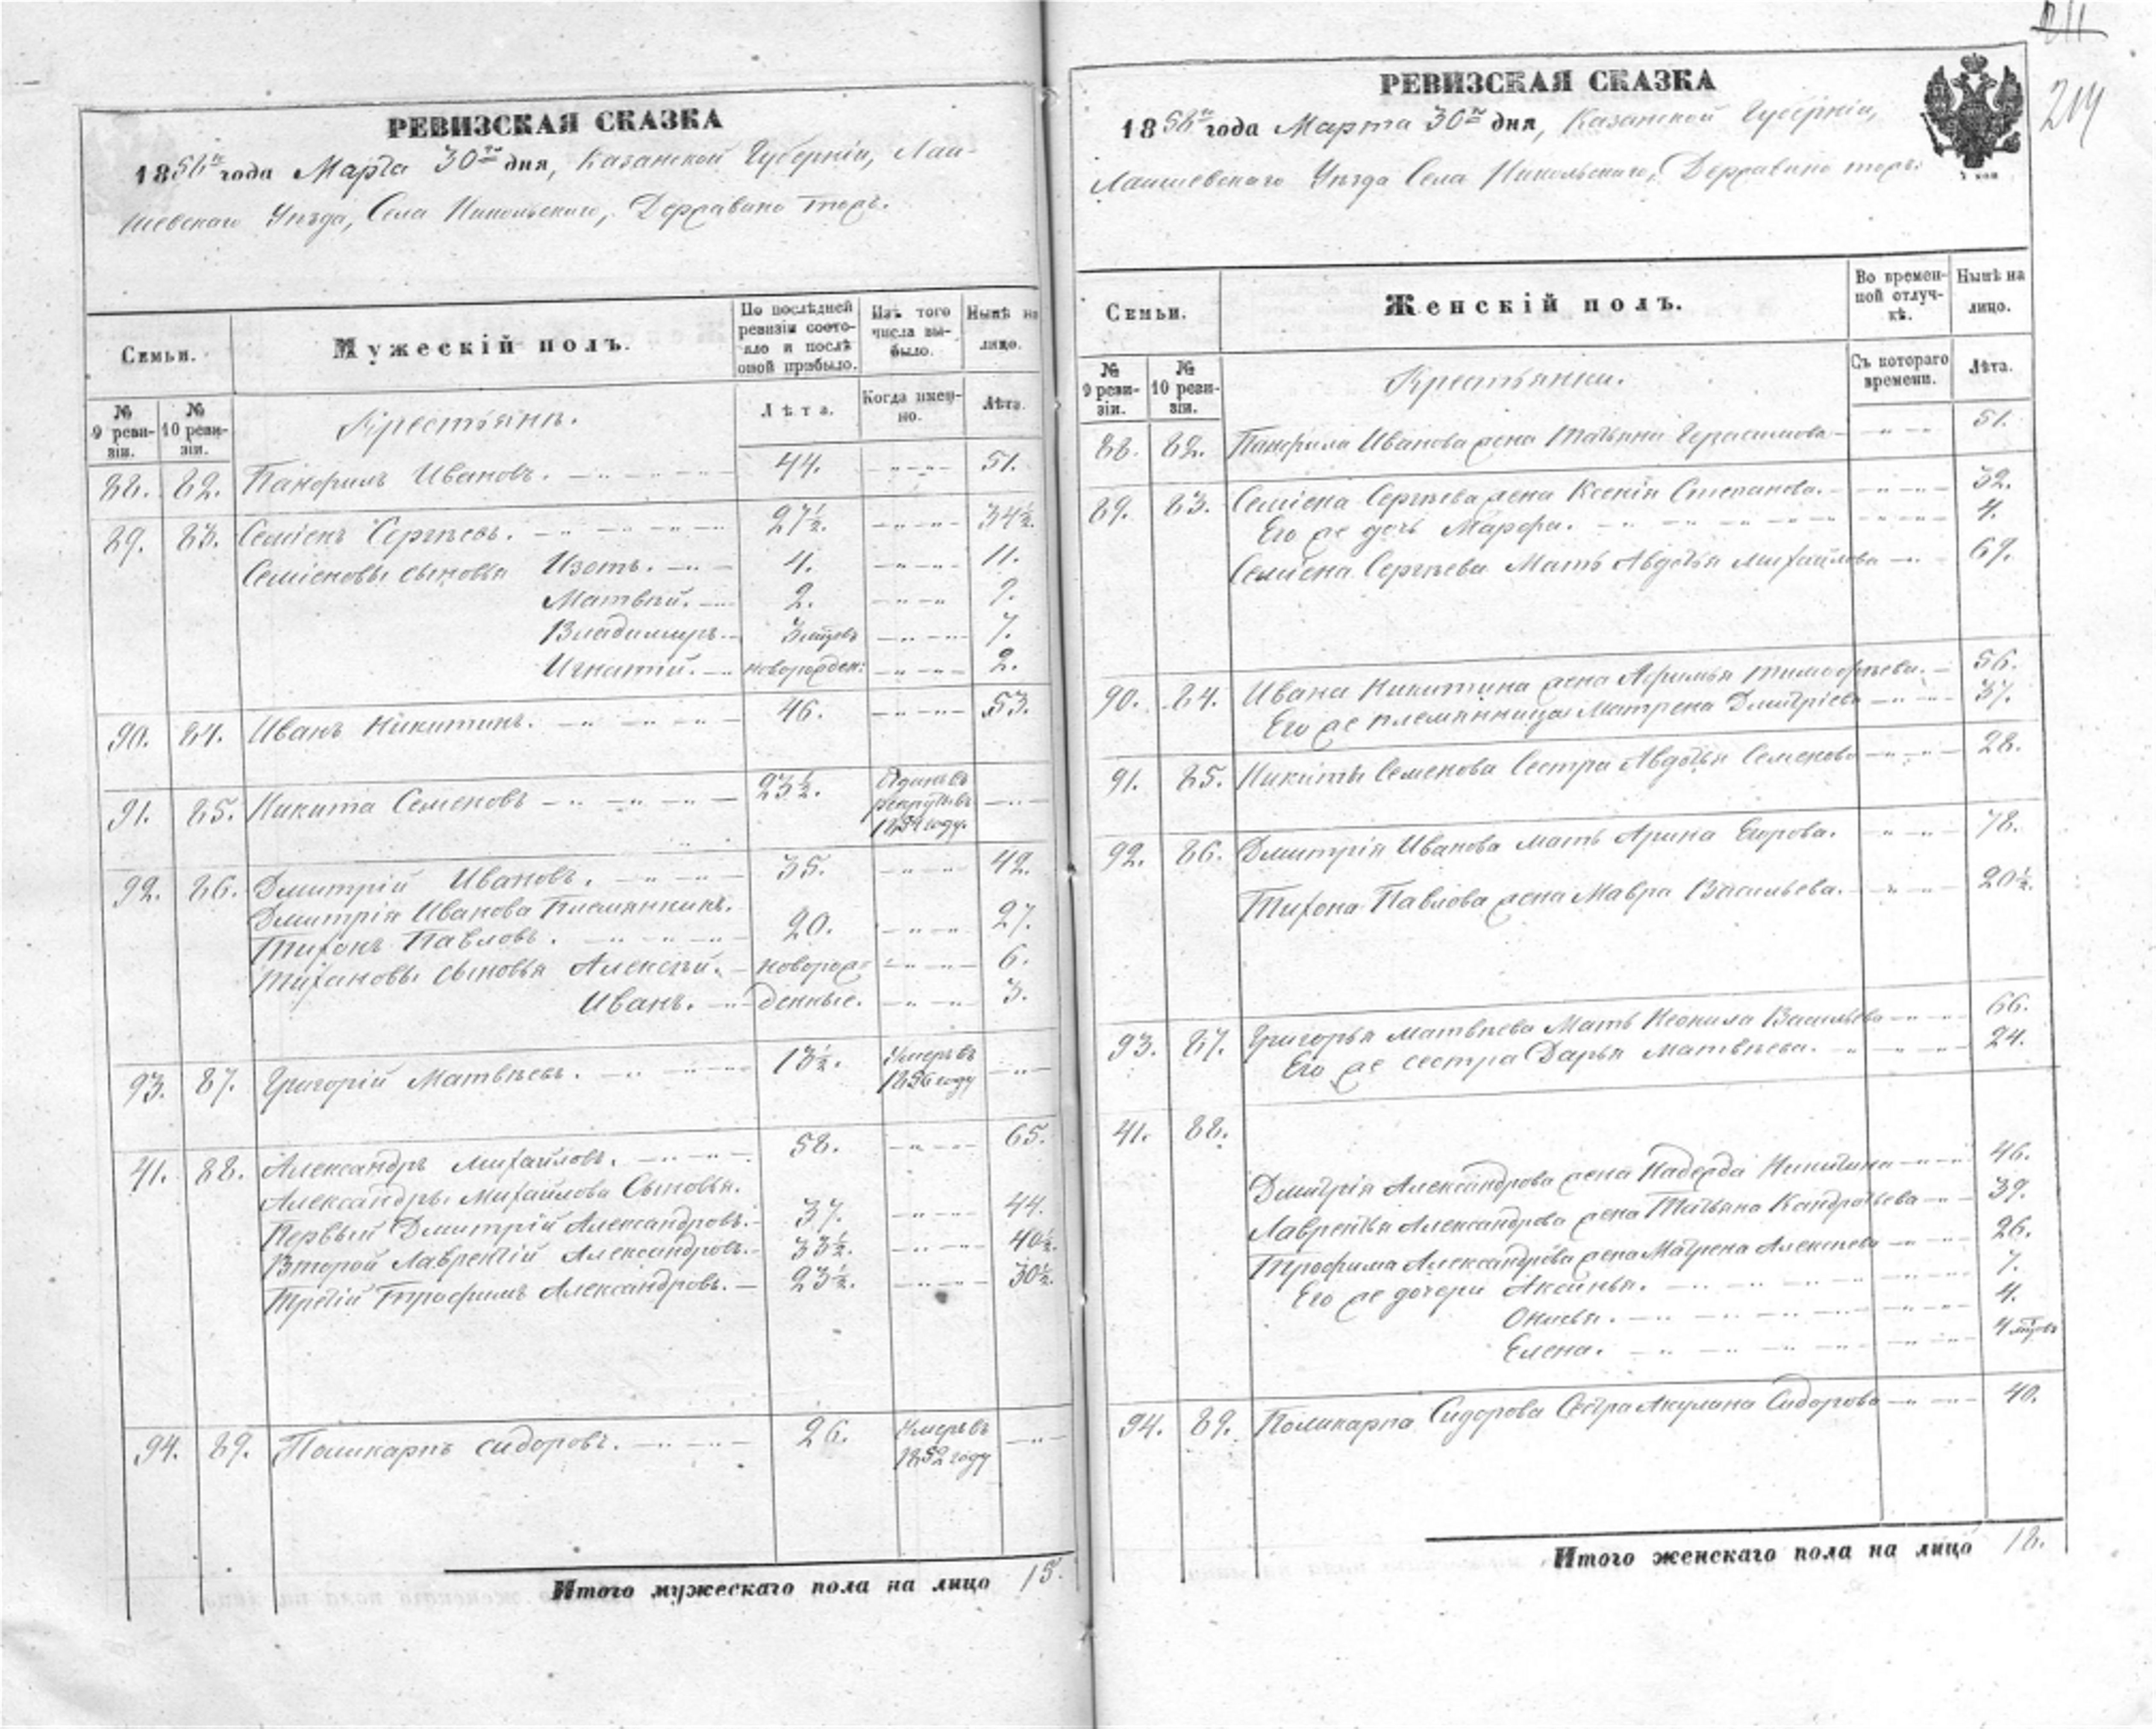 РЕВИЗСКАЯ СКАЗКА
1858го года Марта 30го дня, Казанской Губерніи, Лаи-
шевскаго Уѣзда, Села Никольскаго, Державино тожъ.
Семьи.
Мужескій полъ.
По послѣдней ревизіи состояло и послѣ оной прибыло.
Изъ того числа выбыло.
Нынѣ на лицо.
№ 9 ревизіи.
№ 10 ревизіи.
Крестьянъ.
Лѣта.
Когда именно.
Лѣта.
88. 82. Панфилъ Ивановъ. 44. 51.
89. 83. Семіонъ Сергѣевъ. 27½. 34½.
Семіоновы сыновья Изотъ. 4. 11.
Матвѣй. 2. 9.
Владимиръ 3 мѣсяцевъ 7.
Игнатій. новорожден: 2.
90. 84. Иванъ Никитинъ. 46. 53.
91. 85. Никита Семеновъ 23½. Отданъ въ рекруты въ 1854 году.
92. 86. Дмитрій Ивановъ. 35. 42.
Дмитрія Иванова Племянникъ.
Тихонъ Павловъ. 20. 27.
Тихановы сыновья Алексѣй. новорож- 6.
Иванъ. денные. 3.
93. 87. Григорій Матвѣевъ. 13½. Умеръ въ 1856 году
41. 88. Александръ Михайловъ. 58. 65.
Александры Михайлова Сыновья.
Первый Дмитрій Александровъ. 37. 44.
Второй Лаврентій Александровъ. 33½. 40½.
Третій Трофимъ Александровъ. 23½. 30½.
94. 89. Поликарпъ сидоровъ. 26. Умеръ въ 1852 году
Итого мужескаго пола на лицо 15.
211
214
РЕВИЗСКАЯ СКАЗКА
1858го года Марта 30го дня, Казанской Губерніи,
Лаишевскаго Уѣзда Села Никольскаго, Державино тожъ.
Семьи.
Женскій полъ.
Во временной отлучкѣ.
Нынѣ на лицо.
№ 9 ревизіи.
№ 10 ревизіи.
Крестьянки.
Съ котораго времени.
Лѣта.
88. 82. Панфила Иванова жена Татьяна Герасимова 51.
89. 83. Семіона Сергѣева жена Ксенія Степанова. 32.
Его же дочь Марфа. 4.
Семіона Сергѣева Мать Авдотья Михайлова 69.
90. 84. Ивана Никитина жена Афимья Тимофѣева. 56.
Его же племянница Матрена Дмитріева 37.
91. 85. Никиты Семенова Сестра Авдотья Семенова 28.
92. 86. Дмитрія Иванова мать Арина Егорова. 78.
Тихона Павлова жена Мавра Васильева. 20½.
93. 87. Григорья Матвѣева Мать Неонила Васильева 66.
Его же сестра Дарья Матвѣева. 24.
41. 88.
Дмитрія Александрова жена Надежда Никитина 46.
Лаврентья Александрова жена Татьяна Кондратьева 39.
Трофима Александрова жена Матрена Алексѣева 26.
Его же дочери Аксинья. 7.
Онисья. 4.
Елена. 4 мѣсяцовъ
94. 89. Поликарпа Сидорова Сестра Акулина Сидорова 40.
Итого женскаго пола на лицо 18.